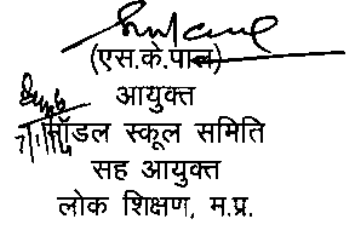 (एस.के.पाल)
आयुक्त
मॉडल स्कूल समिति
सह आयुक्त
लोक शिक्षण, म.प्र.